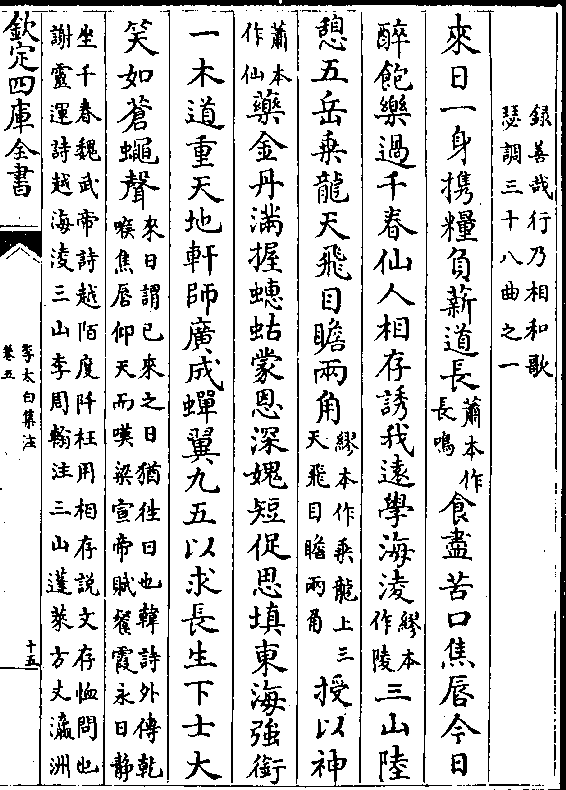 録善哉行乃相和歌
瑟調三十八曲之一
來日一身携糧負薪道長蕭本作長鳴食盡苦口焦唇今日
醉飽樂過千春仙人相存誘我遠學海淩繆本作陵三山陸
憩五岳乘龍天飛目瞻兩角繆本作乘龍上三天飛目瞻兩角授以神
蕭本作仙藥金丹滿握蟪蛄蒙恩深媿短促思填東海強銜
一木道重天地軒師廣成蟬翼九五以求長生下士大
笑如蒼蠅聲來日謂已來之日猶徃日也韓詩外傳乾喉焦唇仰天而嘆梁宣帝賦餐霞永日静
坐千春魏武帝詩越陌度阡枉用相存説文存恤問也
謝靈運詩越海淩三山李周翰注三山蓬萊方丈瀛洲
欽定四庫全書
李太白集注
卷五
十五